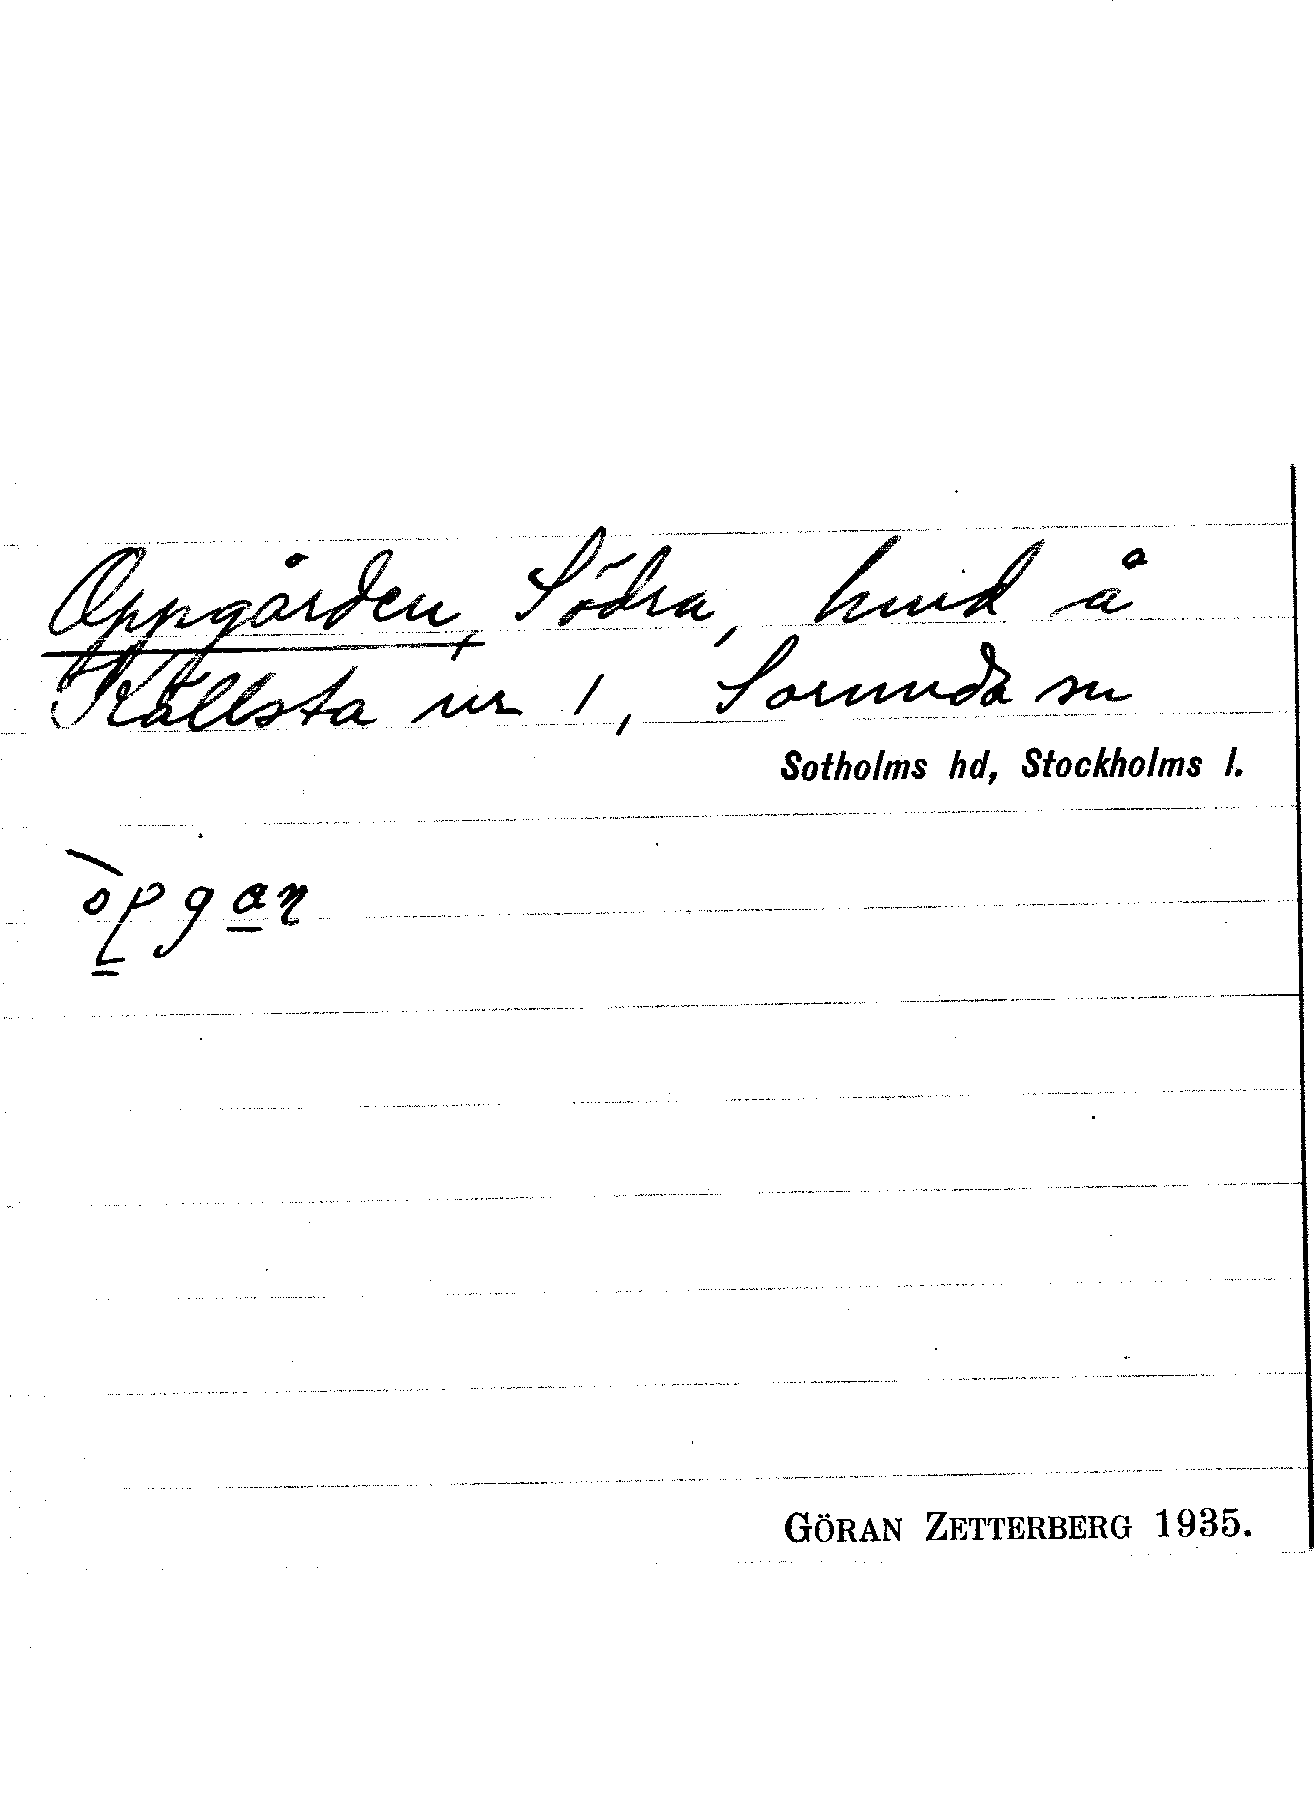 Oppgården, Södra, hmd å
Källsta nr 1, Sorunda sn
Sotholms hd, Stockholms l.
òpgan
GÖRAN ZETTERBERG 1935.